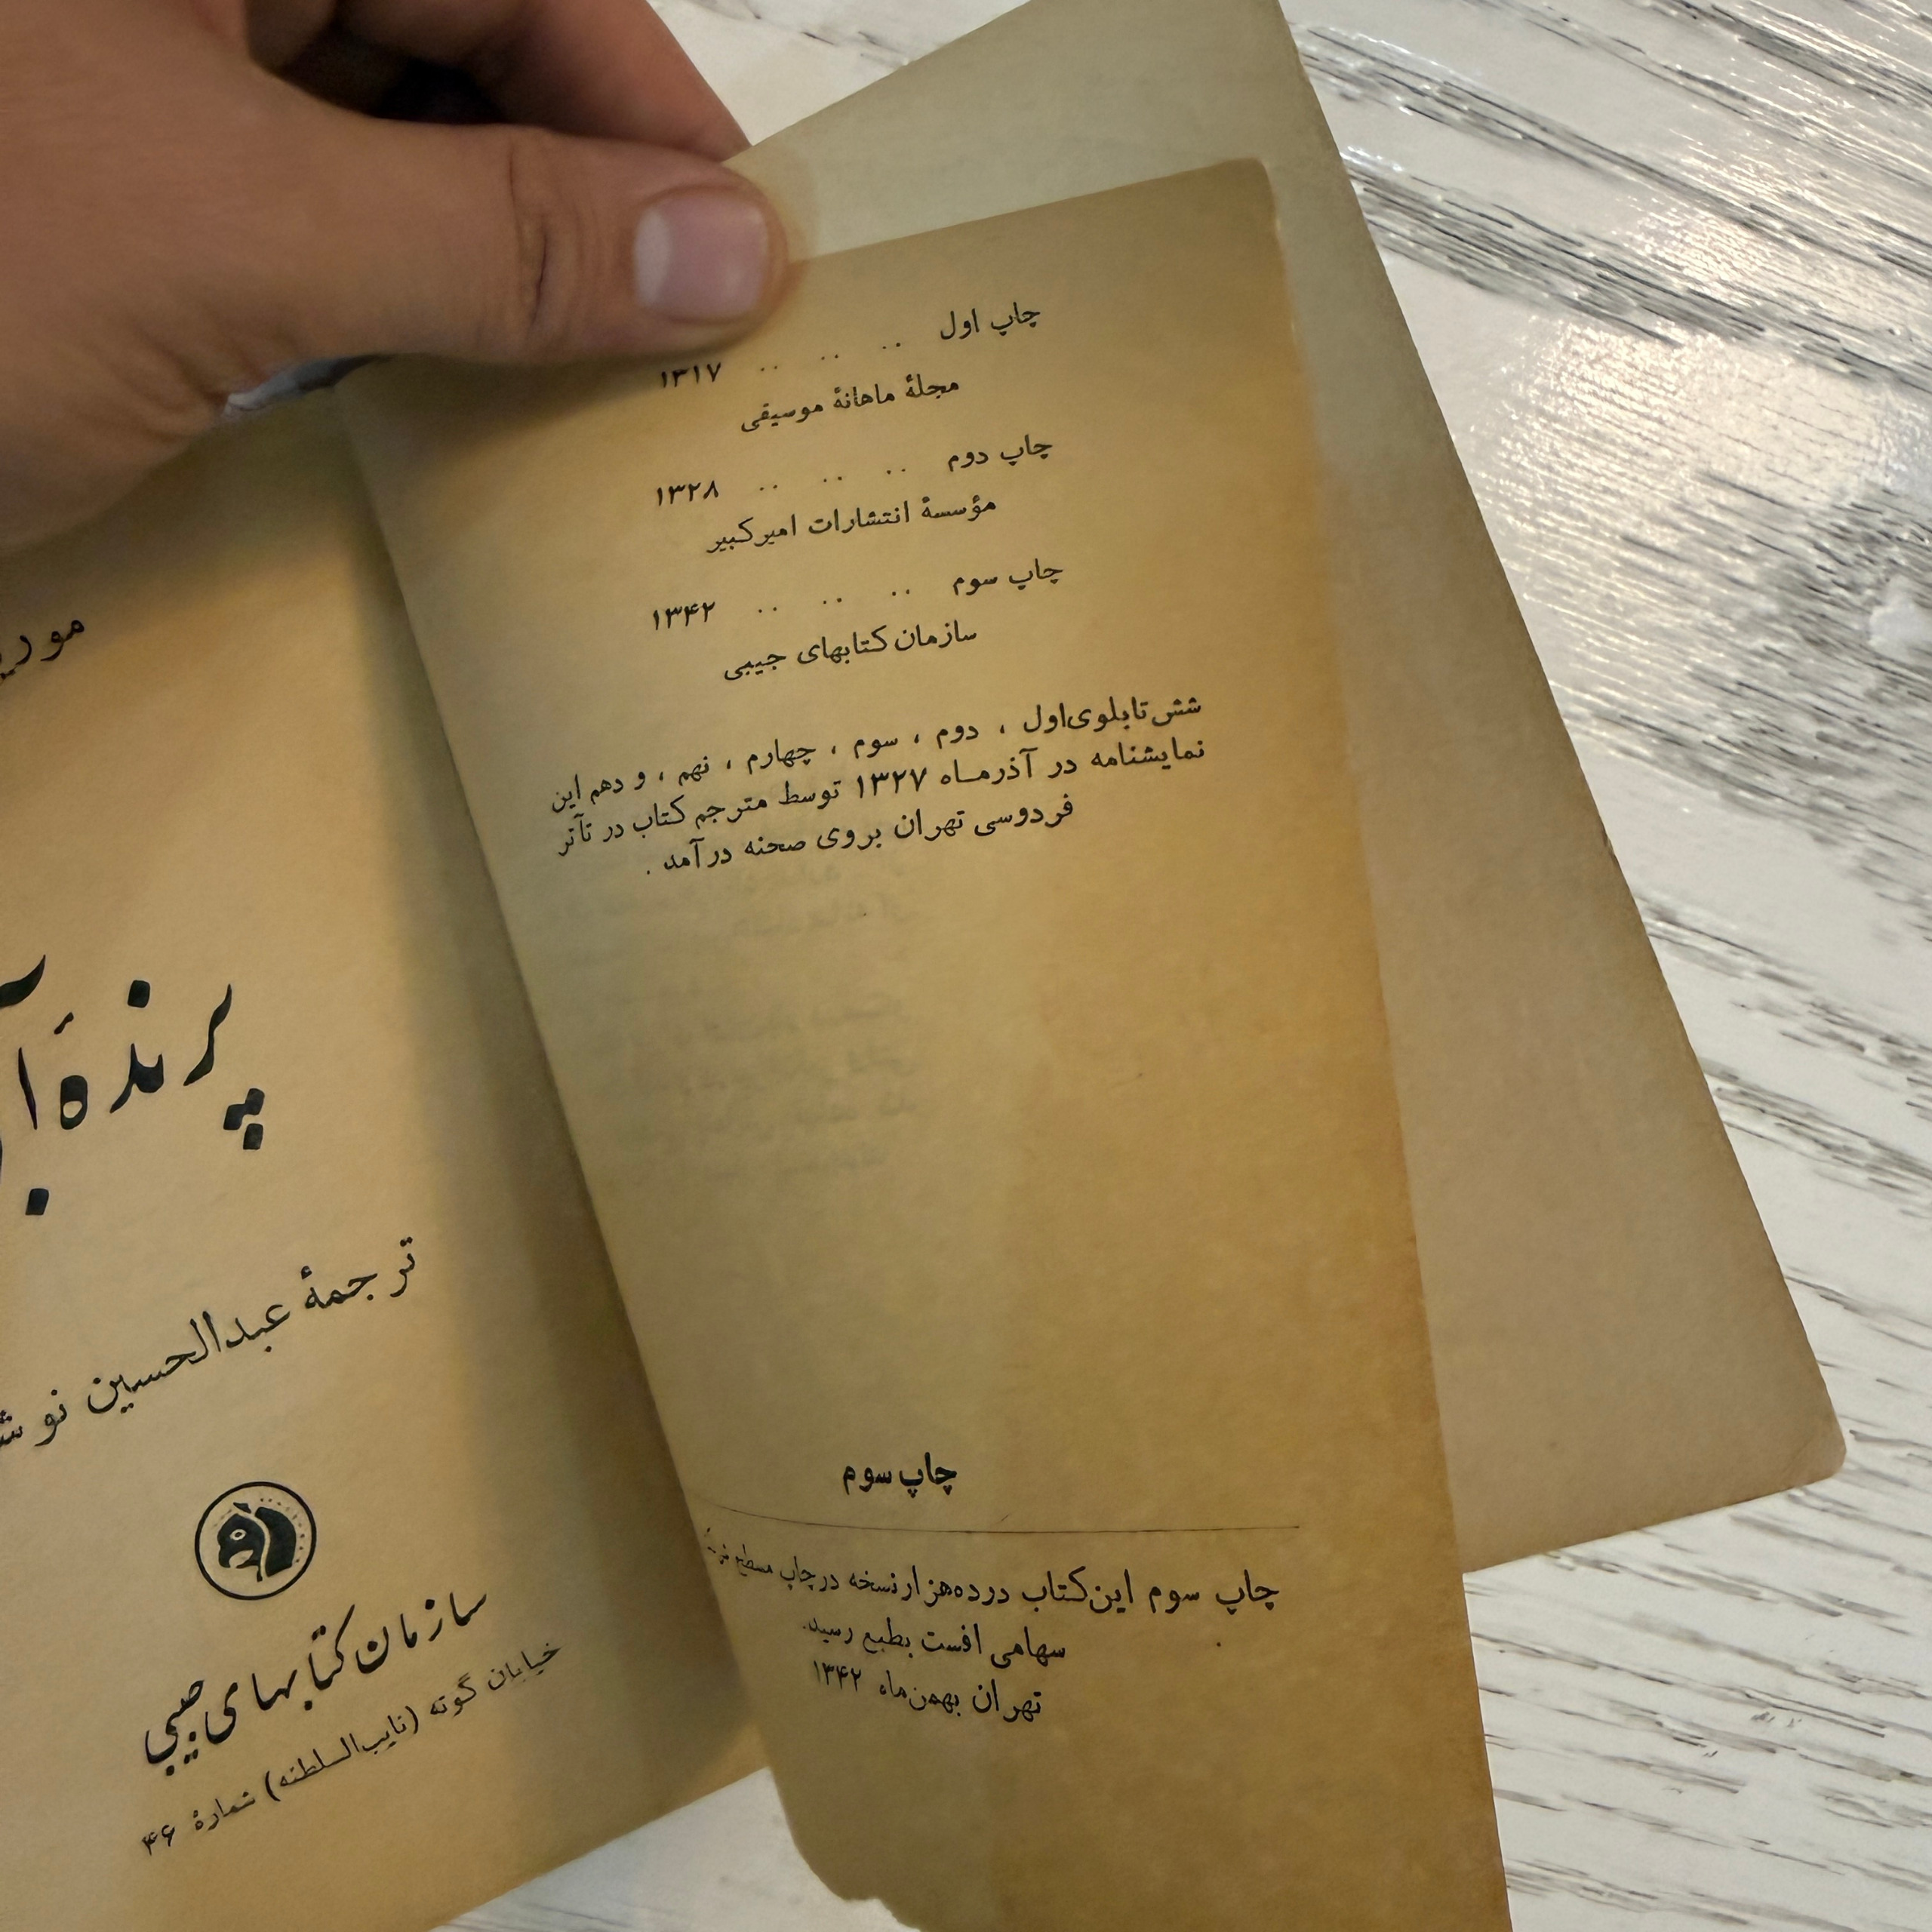 چاپ اول .. .. .. ۱۳۱۷
مجلهٔ ماهانهٔ موسیقی
چاپ دوم .. .. .. ۱۳۲۸
مؤسسهٔ انتشارات امیرکبیر
چاپ سوم .. .. .. ۱۳۴۲
سازمان کتابهای جیبی
شش تابلوی اول ، دوم ، سوم ، چهارم ، نهم ، و دهم این
نمایشنامه در آذرماه ۱۳۲۷ توسط مترجم کتاب در تآتر
فردوسی تهران بروی صحنه درآمد .
چاپ سوم
چاپ سوم این کتاب در ده هزار نسخه در چاپ مسطح
سهامی افست بطبع رسید.
تهران بهمن‌ماه ۱۳۴۲
پرندهٔ
ترجمهٔ عبدالحسین
سازمان کتابهای جیبی
خیابان گوته (نایب‌السلطنه) شمارهٔ ۴۶